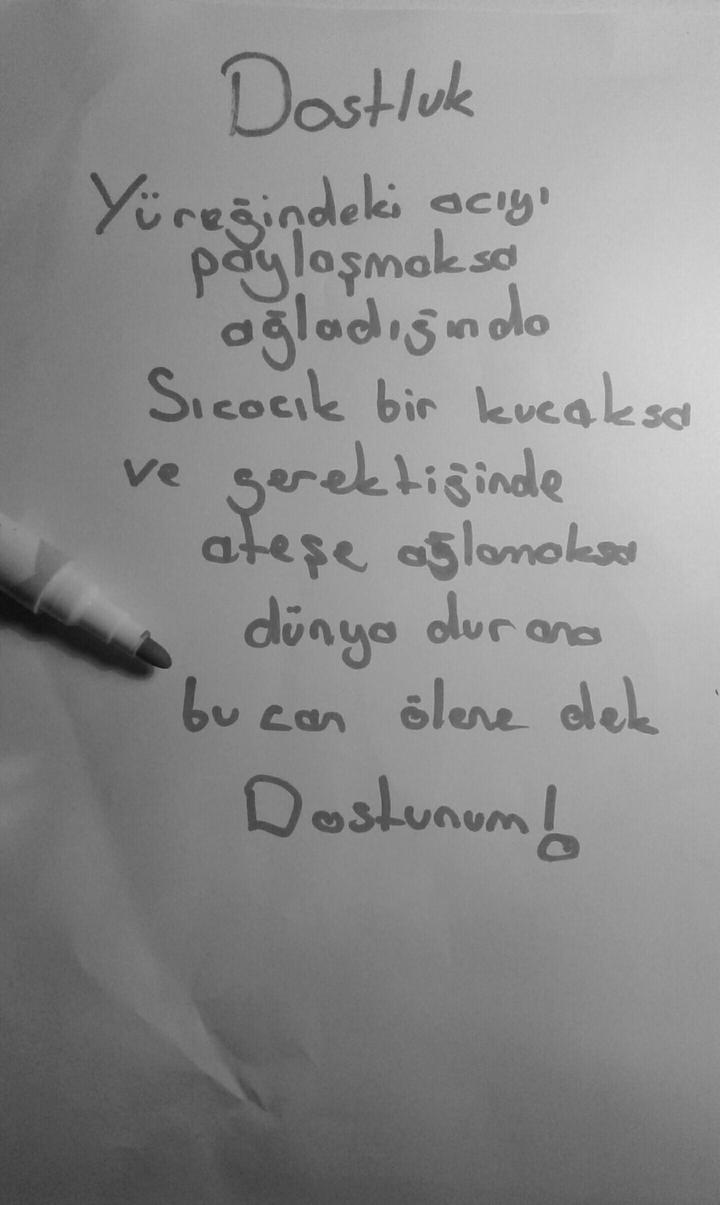 Dostluk
Yüreğindeki acıyı
paylaşmaksa
ağladığında
Sıcacık bir kucaksa
ve gerektiğinde
ateşe ağlamaksa
dünya durana
bu can ölene dek
Dostunum!